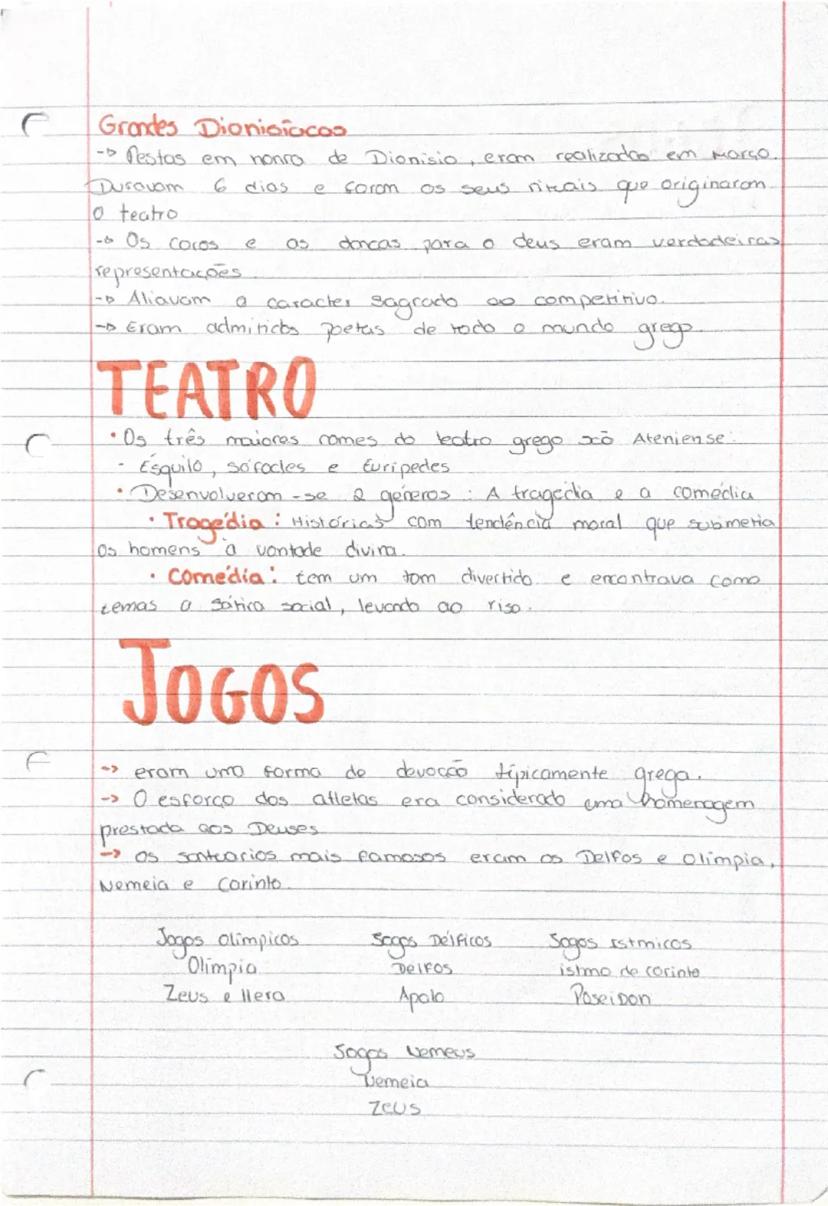 Grandes Dionisíacas
-> Festas em honra de Dionisio, eram realizadas em Março.
Duravam 6 dias e foram os seus rituais que originaram
o teatro
-> Os coros e as danças para o deus eram verdadeiras
representações.
-> Aliavam o caracter sagrado ao competitivo.
-> Eram admitidos poetas de todo o mundo grego.
TEATRO
• Os três maiores nomes do teatro grego são Ateniense:
- Ésquilo, sófocles e Eurípedes
• Desenvolveram-se 2 géneros: A tragédia e a comédia
• Tragédia: Histórias com tendência moral que submetia
os homens à vontade divina.
• Comédia: tem um tom divertido e encontrava como
temas a sátira social, levando ao riso.
JOGOS
-> eram uma forma de devoção típicamente grega.
-> O esforço dos atletas era considerado uma homenagem
prestada aos Deuses
-> os santuarios mais famosos eram os Delfos e Olímpia,
Nemeia e Corinto.
Jogos Olimpicos Jogos Délficos Jogos Istmicos
Olimpia Delfos istmo de corinto
Zeus e Hera Apolo Poseidon
Jogos Nemeus
Nemeia
Zeus